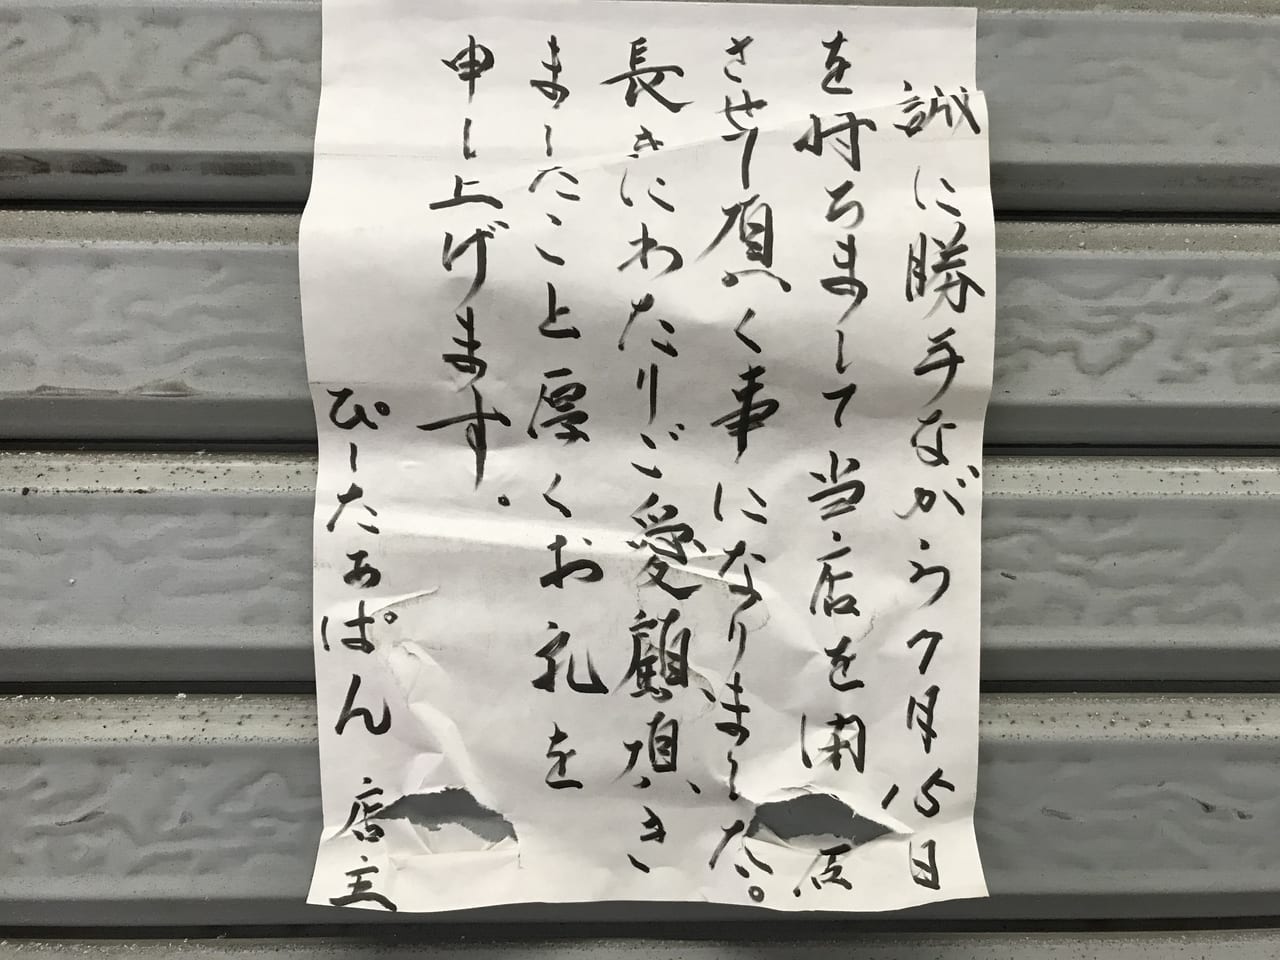 誠に勝手ながら7月15日
を持ちまして当店を閉店
させて頂く事になりました。
長きにわたりご愛顧頂き
ましたこと厚くお礼を
申し上げます。
ぴーたぁぱん 店主